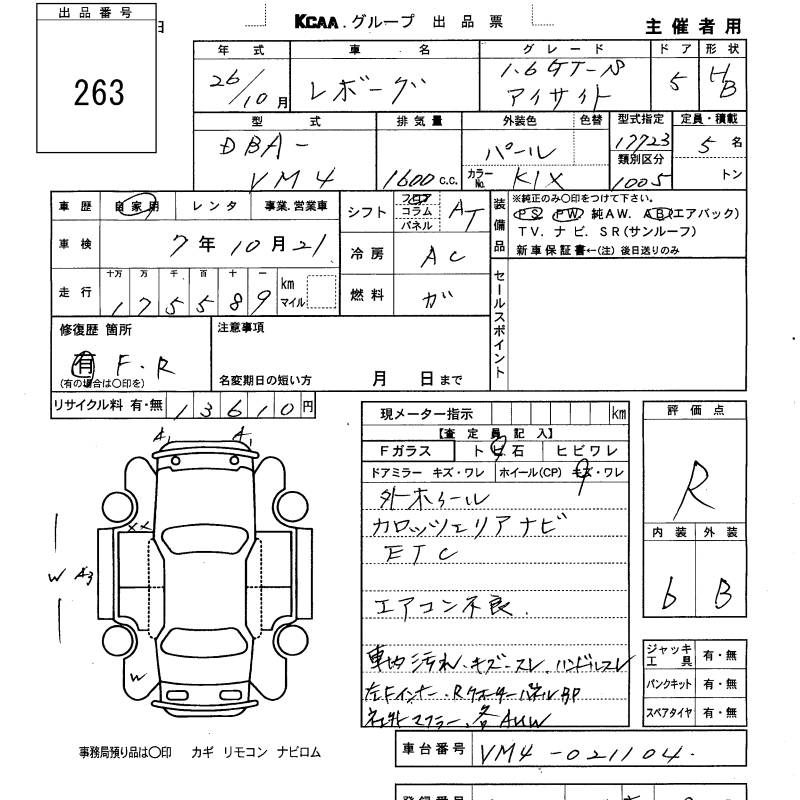 出品番号
263
日
KCAA.グループ 出品票
主催者用
年式 車名 グレード ドア 形状
26/10月 レボーグ 1.6GT-S アイサイト 5 HB
型式 排気量 外装色 色替 型式指定 定員・積載
DBA-VM4 1600 C.C. パール 17723 5名
カラーNo. K1X 類別区分 1005 トン
車歴 自家用 レンタ 事業.営業車
車検 7年10月21
走行 十万 万 千 百 十 一 km マイル
175589
シフト フロア コラム パネル AT
冷房 AC
燃料 ガ
装備品
※純正のみ○印をつけて下さい。
PS PW 純AW. AB(エアバック)
TV. ナビ. SR(サンルーフ)
新車保証書←(注) 後日送りのみ
セールスポイント
修復歴 箇所
有 F.R
(有の場合は○印を)
注意事項
名変期日の短い方 月 日まで
リサイクル料 有・無 13610円
現メーター指示 km
【査定員記入】
Fガラス トビ石 ヒビワレ
ドアミラー キズ・ワレ ホイール(CP) キズ・ワレ
外ホイール
カロッツェリアナビ
ETC
エアコン不良.
車内汚れ、キズ・スレ、ハンドルスレ
左Fインナー、RクォーターパネルBP
社外マフラー、各AUW
評価点
R
内装 外装
6 B
ジャッキ工具 有・無
パンクキット 有・無
スペアタイヤ 有・無
A1 A1
XX
W A3
W
事務局預り品は○印 カギ リモコン ナビロム
車台番号 VM4-021104.
登録番号